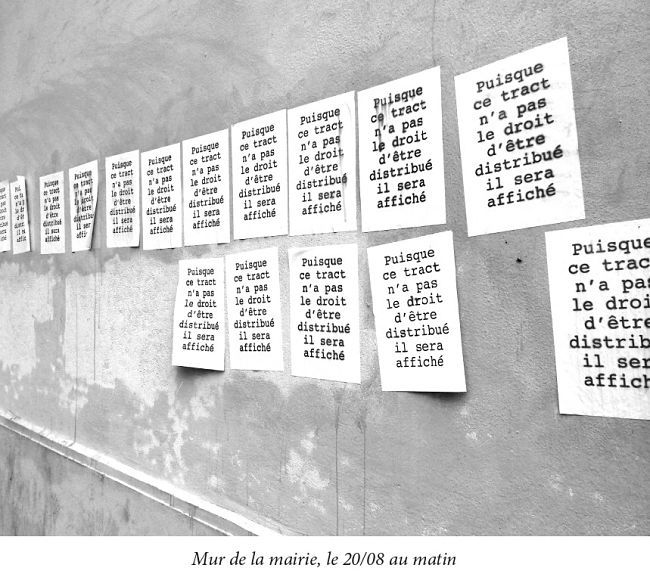 Puisque
ce tract
n'a pas
le droit
d'être
distribué
il sera
affiché
Puisque
ce tract
n'a pas
le droit
d'être
il
Puisque
ce tract
n'a pas
le droit
d'être
distribué
il sera
affiché
Puisque
ce tract
n'a pas
le droit
d'être
distribué
il sera
affiché
Puisque
ce tract
n'a pas
le droit
d'être
distribué
il sera
affiché
Puisque
ce tract
n'a pas
le droit
d'être
distribué
il sera
affiché
Puisque
ce tract
n'a pas
le droit
d'être
distribué
il sera
affiché
Puisque
ce tract
n'a pas
le droit
d'être
distribué
il sera
affiché
Puisque
ce tract
n'a pas
le droit
d'être
distribué
il sera
affiché
Puisque
ce tract
n'a pas
le droit
d'être
distribué
il sera
affiché
Puisque
ce tract
n'a pas
le droit
d'être
distribué
il sera
affiché
Puisque
ce tract
n'a pas
le droit
d'être
distribué
il sera
affiché
Puisque
ce tract
n'a pas
le droit
d'être
distribué
il sera
affiché
Puisque
ce trac
n'a pas
le droi
d'être
distrib
il ser
affich
Mur de la mairie, le 20/08 au matin